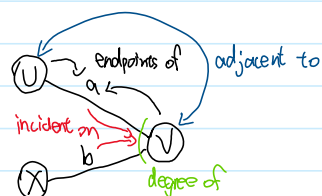 endpoints of
adjacent to
U
a
incident on
V
b
X
degree of